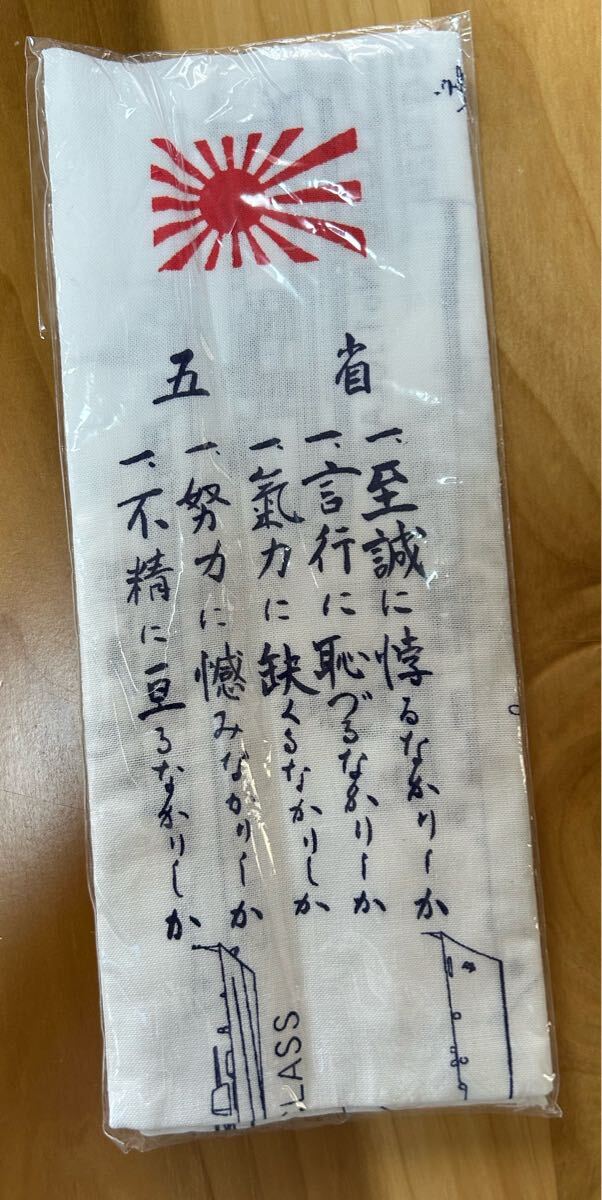 五省
一、至誠に悖るなかりしか
一、言行に恥づるなかりしか
一、氣力に缺くるなかりしか
一、努力に憾みなかりしか
一、不精に亘るなかりしか
LASS